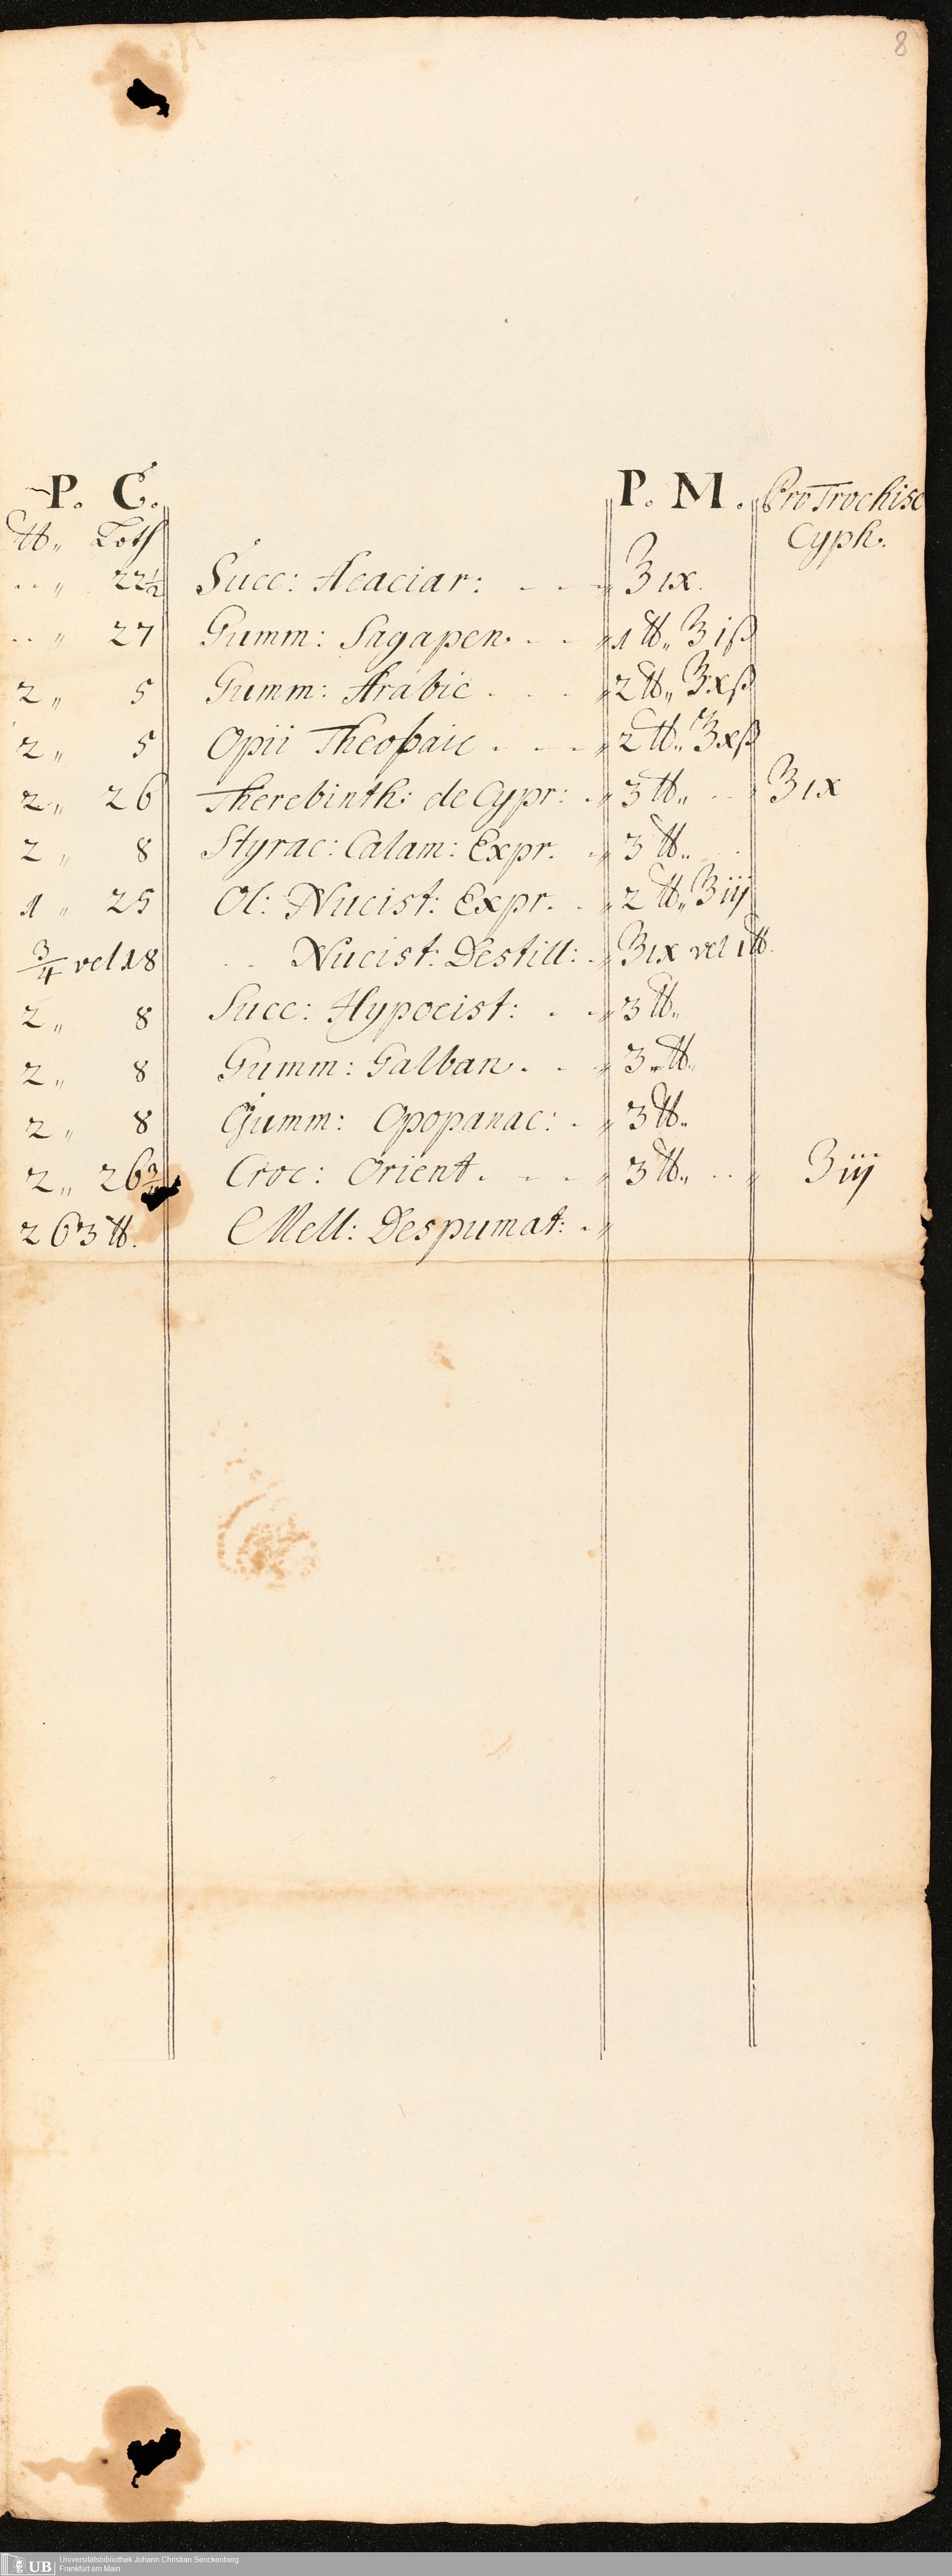 8
P. C. P. M. Pro Trochisc
℔„ Loth Cyph.
.. „ 22½ Succ: Acaciar: - - - ℥ ix.
.. „ 27 Gumm: Sagapen. - - 1 ℔„ ℥ iß
2 „ 5 Gumm: Arabic . . . 2 ℔„ ℥xß
2 „ 5 Opii Thebaic . - - 2 ℔„ ℥xß
2 „ 26 Therebinth: de Cypr: . 3 ℔„ .. „ ℥ ix
2 „ 8 Styrac: Calam: Expr. . 3 ℔„
1 „ 25 Ol: Nucist: Expr. . 2 ℔„ ℥ iij
¾ vel 18 .. Nucist: Destill: . ℥ix vel 1℔.
2 „ 8 Succ: Hypocist: . . 3 ℔„
2 „ 8 Gumm: Galban. . . 3 ℔„
2 „ 8 Gumm: Opopanac: . 3 ℔„
2 „ 26¾ Croc: Orient. . . . 3 ℔„ .. „ ℥ iij
263 ℔. Mell: Despumat: . „
UB Universitätsbibliothek Johann Christian Senckenberg
Frankfurt am Main